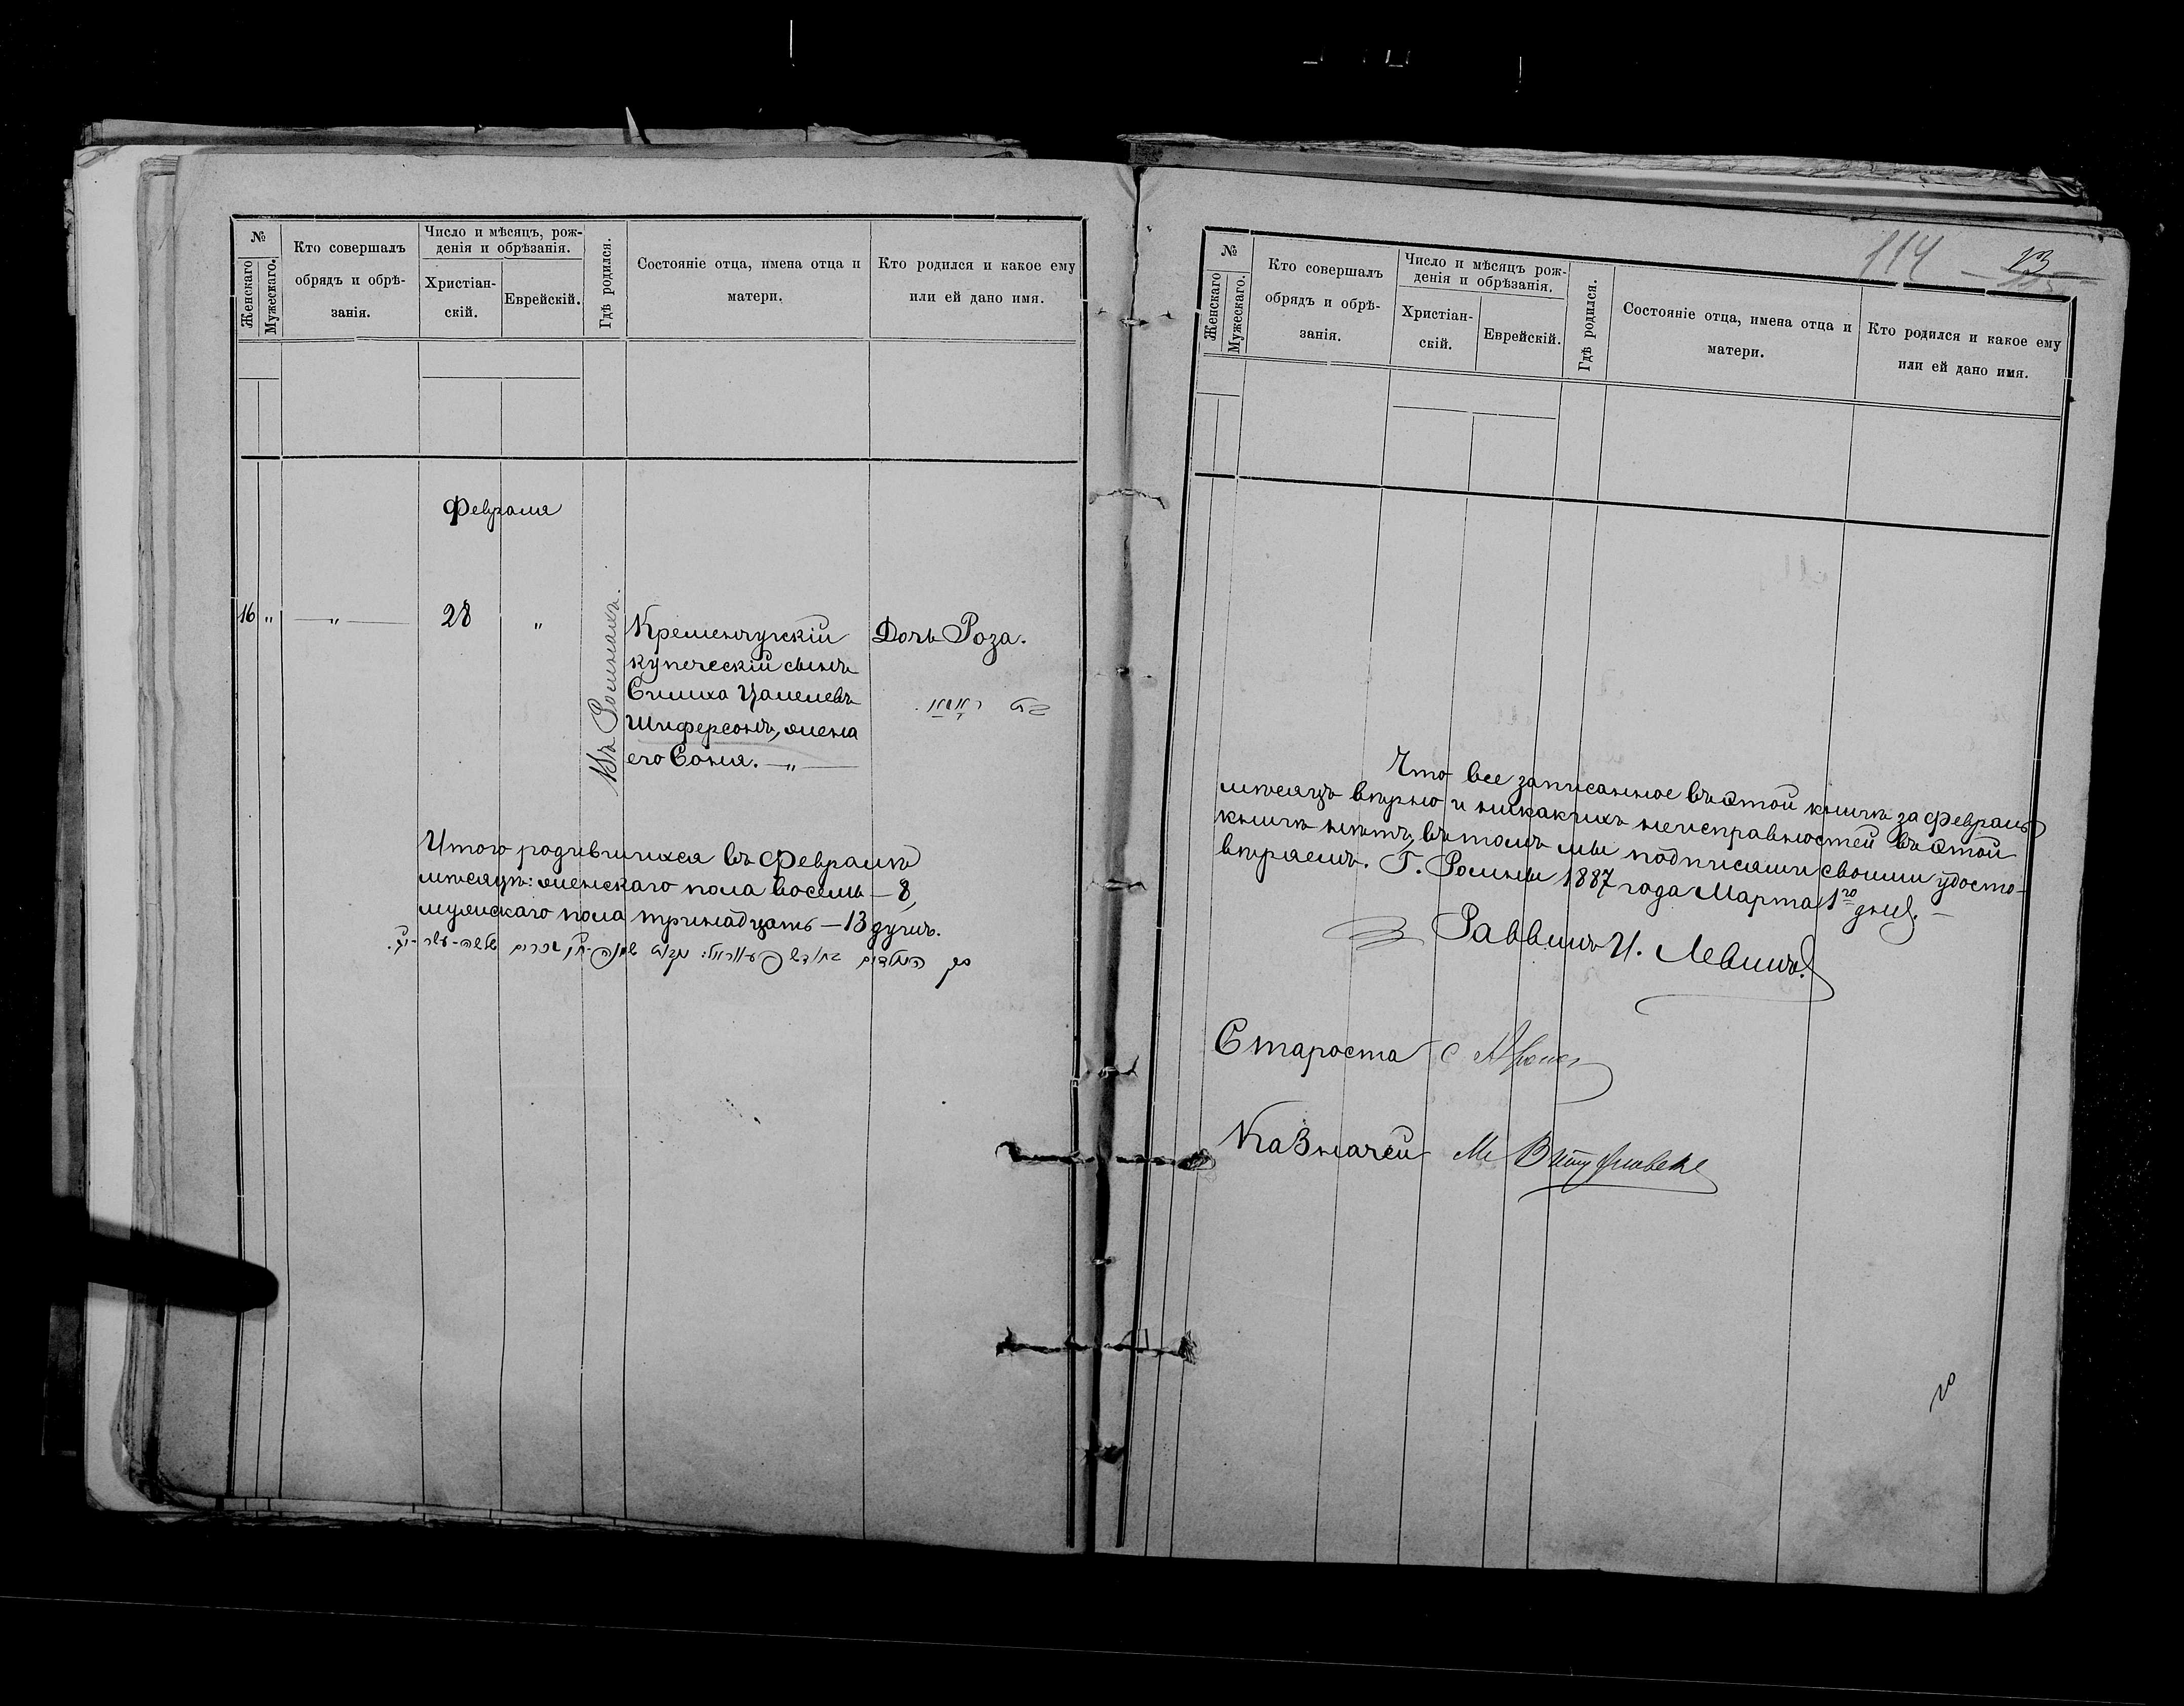 №
Женскаго
Мужескаго.
Кто совершалъ
обрядъ и обрѣ-
занія.
Число и мѣсяцъ, рож-
денія и обрѣзанія.
Христіан-
скій.
Еврейскій.
Гдѣ родился.
Состояніе отца, имена отца и
матери.
Кто родился и какое ему
или ей дано имя.
Февраля
16 " — " — 28 "
Въ Ромнахъ.
Кременчугскій
купеческій сынъ
Симха
Шиферсонъ, жена
его Соня. — " —
Дочь Роза.
Итого родившихся въ Февралѣ
мѣсяцѣ: женскаго пола восемь — 8,
мужскаго пола тринадцать — 13 душъ.
114
13
№
Женскаго
Мужескаго.
Кто совершалъ
обрядъ и обрѣ-
занія.
Число и мѣсяцъ рож-
денія и обрѣзанія.
Христіан-
скій.
Еврейскій.
Гдѣ родился.
Состояніе отца, имена отца и
матери.
Кто родился и какое ему
или ей дано имя.
Что все записанное въ этой книгѣ за февраль
мѣсяцъ вѣрно и никакихъ неисправностей въ этой
книгѣ нѣтъ, въ томъ мы подписями своими удосто-
вѣряемъ. Г. Ромны 1887 года Марта 1го дня. —
Раввинъ И. Левинъ.
Староста
Казначей М